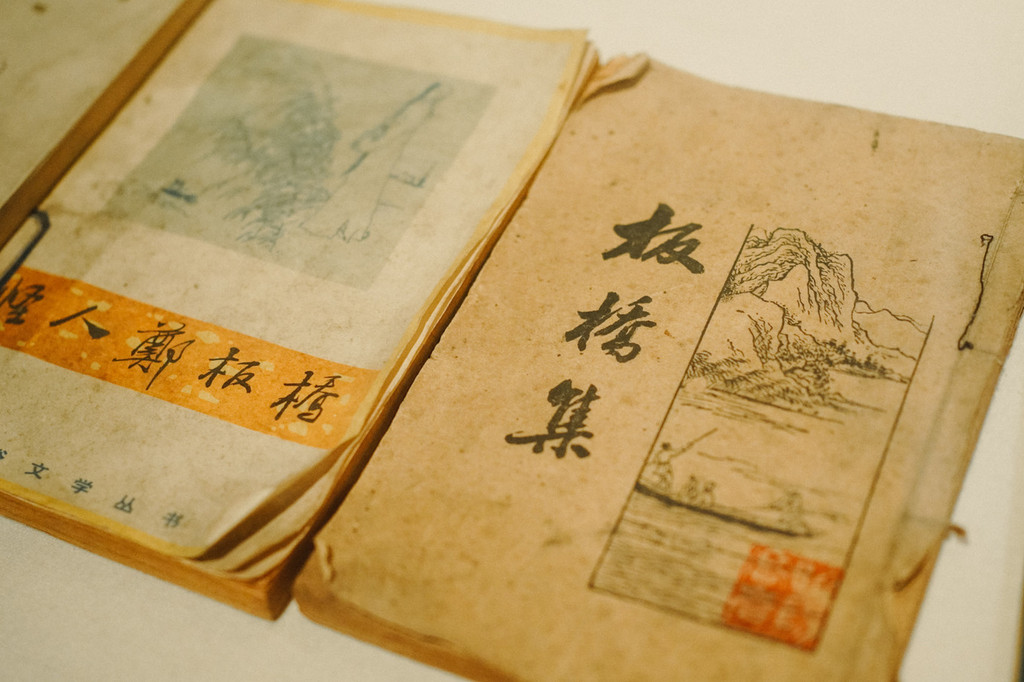 怪人鄭板橋
文学丛书
板橋集